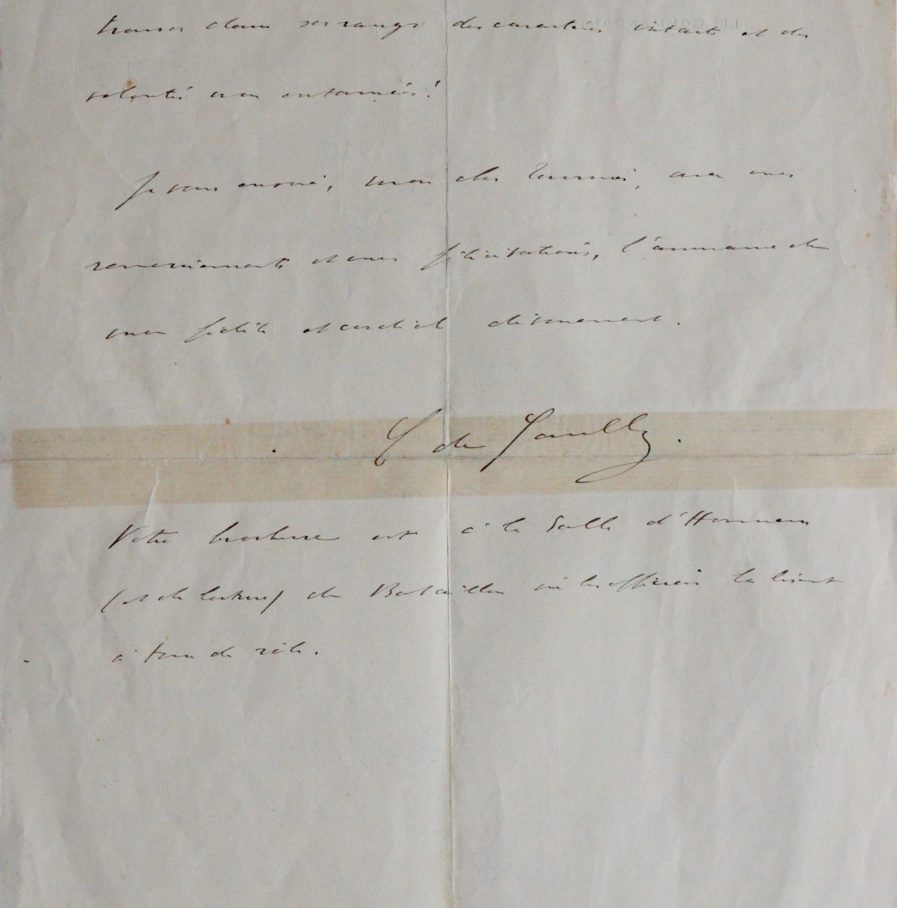 trouver dans ses rangs des caractères intacts et des
volontés non entamées!
Je vous envoie, mon cher, avec mes
remerciements et mes félicitations, l'assurance de
mon fidèle et cordial dévouement.
C de Gaulle.
Votre brochure est à la Salle d'Honneur
(et de lecture) du Bataillon où les officiers la lisent
à tour de rôle.